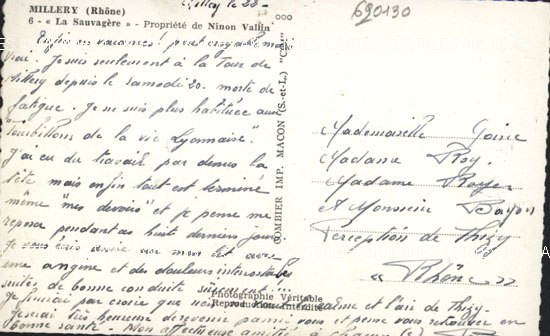 MILLERY (Rhône)
6 - « La Sauvagère » - Propriété de Ninon Vallin
Millery le 28-
690130
Enfin en vacances! pas croyable mais
vrai. Je suis seulement à la Tour de
Millery depuis le samedi 20. morte de
fatigue. Je ne suis plus habituée aux
tourbillons de la vie Lyonnaise"
J'ai eu du travail par dessus la
tête mais enfin tout est terminé
même "mes devoirs" et je pense me
reposer pendant ces huit derniers jours.
Je vous écris au lit avec
une angine et des douleurs intercostales
suites de bonne conduite
Je finirai par croire que l'air de Thizy
heureuse de revenir parmi vous et vous retrouver en
bonne santé. Mon affectueuse
COMBIER IMP. MACON (S.-et-L.) "CIM"
Photographie Véritable
Reproduction Interdite
Mademoiselle
Madame Roy.
Madame Royer
et Monsieur Bayon
Perception de Thizy
« Rhône »